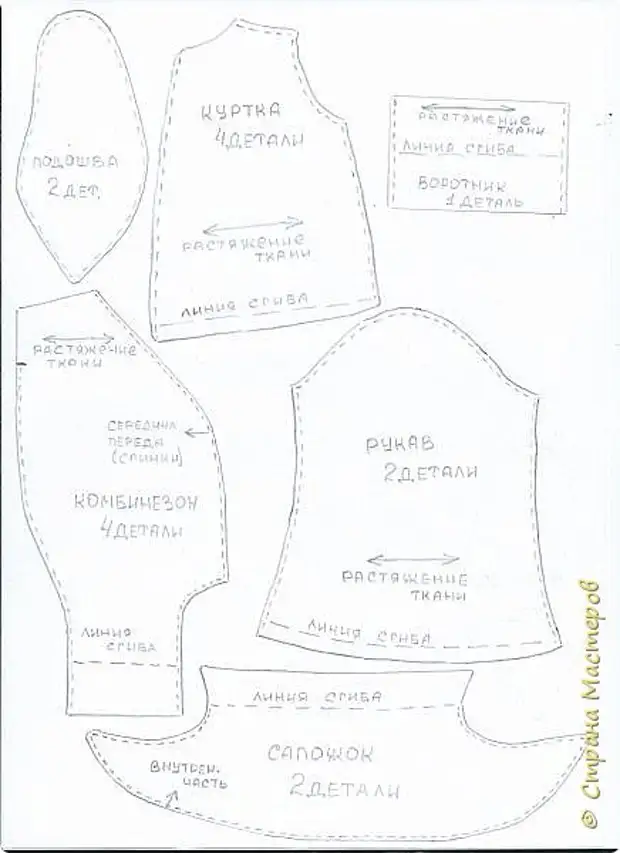 ПОДОШВА
2 ДЕТ.
КУРТКА
4 ДЕТАЛИ
РАСТЯЖЕНИЕ
ТКАНИ
ЛИНИЯ СГИБА
РАСТЯЖЕНИЕ
ТКАНИ
ЛИНИЯ СГИБА
ВОРОТНИК
1 ДЕТАЛЬ
РАСТЯЖЕНИЕ
ТКАНИ
СЕРЕДИНА
ПЕРЕДА
(СПИНКИ)
КОМБИНЕЗОН
4 ДЕТАЛИ
ЛИНИЯ
СГИБА
РУКАВ
2 ДЕТАЛИ
РАСТЯЖЕНИЕ
ТКАНИ
ЛИНИЯ СГИБА
ЛИНИЯ СГИБА
САПОЖОК
2 ДЕТАЛИ
ВНУТРЕН.
ЧАСТЬ
© Страна Мастеров